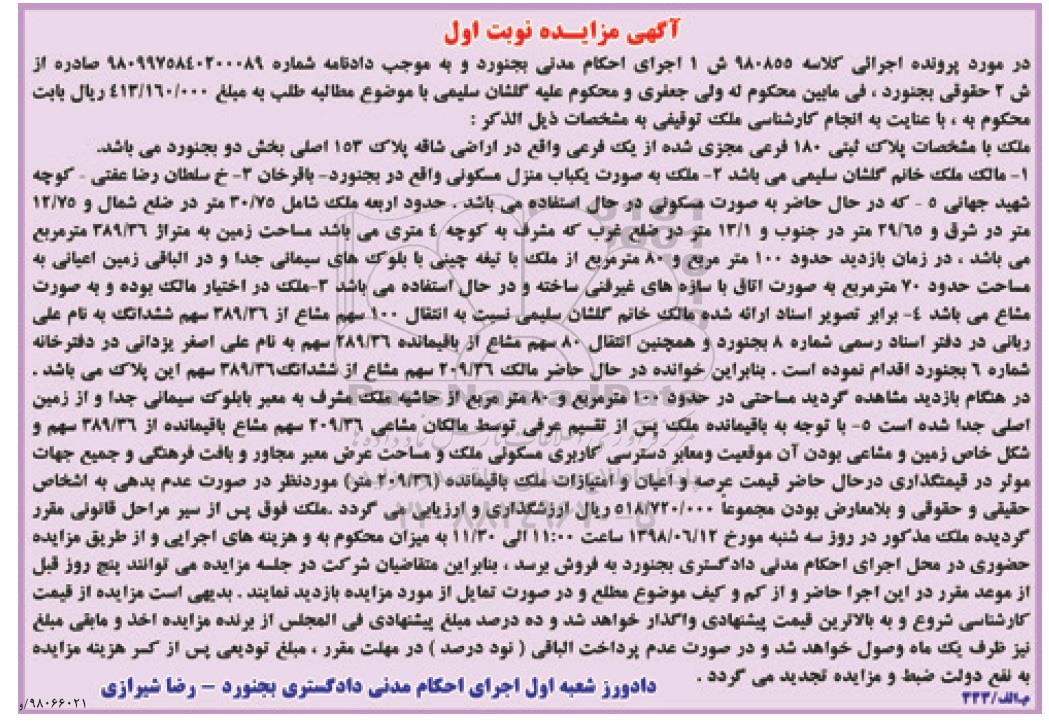 آگهی مزایـــده نوبت اول
در مورد پرونده اجرائی کلاسه ۹۸۰۸۵۵ ش ۱ اجرای احکام مدنی بجنورد و به موجب دادنامه شماره ۹۸۰۹۹۷۵۸۴۰۲۰۰۰۸۹ صادره از
ش ۲ حقوقی بجنورد ، فی مابین محکوم له ولی جعفری و محکوم علیه گلشان سلیمی با موضوع مطالبه طلب به مبلغ ۴۱۳/۱۶۰/۰۰۰ ریال بابت
محکوم به ، با عنایت به انجام کارشناسی ملک توقیفی به مشخصات ذیل الذکر :
ملک با مشخصات پلاک ثبتی ۱۸۰ فرعی مجزی شده از یک فرعی واقع در اراضی شاقه پلاک ۱۵۳ اصلی بخش دو بجنورد می باشد.
۱- مالک ملک خانم گلشان سلیمی می باشد ۲- ملک به صورت یکباب منزل مسکونی واقع در بجنورد- باقرخان ۳- خ سلطان رضا عفتی - کوچه
شهید جهانی ۵ - که در حال حاضر به صورت مسکونی در حال استفاده می باشد . حدود اربعه ملک شامل ۳۰/۷۵ متر در ضلع شمال و ۱۲/۷۵
متر در شرق و ۲۹/۶۵ متر در جنوب و ۱۳/۱ متر در ضلع غرب که مشرف به کوچه ۴ متری می باشد مساحت زمین به متراژ ۳۸۹/۳۶ مترمربع
می باشد ، در زمان بازدید حدود ۱۰۰ متر مربع و ۸۰ مترمربع از ملک با تیغه چینی با بلوک های سیمانی جدا و در الباقی زمین اعیانی به
مساحت حدود ۷۰ مترمربع به صورت اتاق با سازه های غیرفنی ساخته و در حال استفاده می باشد ۳-ملک در اختیار مالک بوده و به صورت
مشاع می باشد ۴- برابر تصویر اسناد ارائه شده مالک خانم گلشان سلیمی نسبت به انتقال ۱۰۰ سهم مشاع از ۳۸۹/۳۶ سهم ششدانگ به نام علی
ربانی در دفتر اسناد رسمی شماره ۸ بجنورد و همچنین انتقال ۸۰ سهم مشاع از باقیمانده ۲۸۹/۳۶ سهم به نام علی اصغر یزدانی در دفترخانه
شماره ۶ بجنورد اقدام نموده است . بنابراین خوانده در حال حاضر مالک ۲۰۹/۳۶ سهم مشاع از ششدانگ۳۸۹/۳۶ سهم این پلاک می باشد .
در هنگام بازدید مشاهده گردید مساحتی در حدود ۱۰۰ مترمربع و ۸۰ متر مربع از حاشیه ملک مشرف به معبر بابلوک سیمانی جدا و از زمین
اصلی جدا شده است ۵- با توجه به باقیمانده ملک پس از تقسیم عرفی توسط مالکان مشاعی ۲۰۹/۳۶ سهم مشاع باقیمانده از ۳۸۹/۳۶ سهم و
شکل خاص زمین و مشاعی بودن آن موقعیت ومعابر دسترسی کاربری مسکونی ملک و مساحت عرض معبر مجاور و بافت فرهنگی و جمیع جهات
موثر در قیمتگذاری درحال حاضر قیمت عرصه و اعیان و امتیازات ملک باقیمانده (۲۰۹/۳۶ متر) موردنظر در صورت عدم بدهی به اشخاص
حقیقی و حقوقی و بلامعارض بودن مجموعا ۵۱۸/۷۲۰/۰۰۰ ریال ارزشگذاری و ارزیابی می گردد .ملک فوق پس از سیر مراحل قانونی مقرر
گردیده ملک مذکور در روز سه شنبه مورخ ۱۳۹۸/۰۶/۱۲ ساعت ۱۱:۰۰ الی ۱۱/۳۰ به میزان محکوم به و هزینه های اجرایی و از طریق مزایده
حضوری در محل اجرای احکام مدنی دادگستری بجنورد به فروش برسد ، بنابراین متقاضیان شرکت در جلسه مزایده می توانند پنج روز قبل
از موعد مقرر در این اجرا حاضر و از کم و کیف موضوع مطلع و در صورت تمایل از مورد مزایده بازدید نمایند . بدیهی است مزایده از قیمت
کارشناسی شروع و به بالاترین قیمت پیشنهادی واگذار خواهد شد و ده درصد مبلغ پیشنهادی فی المجلس از برنده مزایده اخذ و مابقی مبلغ
نیز ظرف یک ماه وصول خواهد شد و در صورت عدم پرداخت الباقی ( نود درصد ) در مهلت مقرر ، مبلغ تودیعی پس از کسر هزینه مزایده
به نفع دولت ضبط و مزایده تجدید می گردد .
دادورز شعبه اول اجرای احکام مدنی دادگستری بجنورد – رضا شیرازی
م.الف/۳۳۳
۹۸۰۶۶۰۲۱/و
ParsNamadData